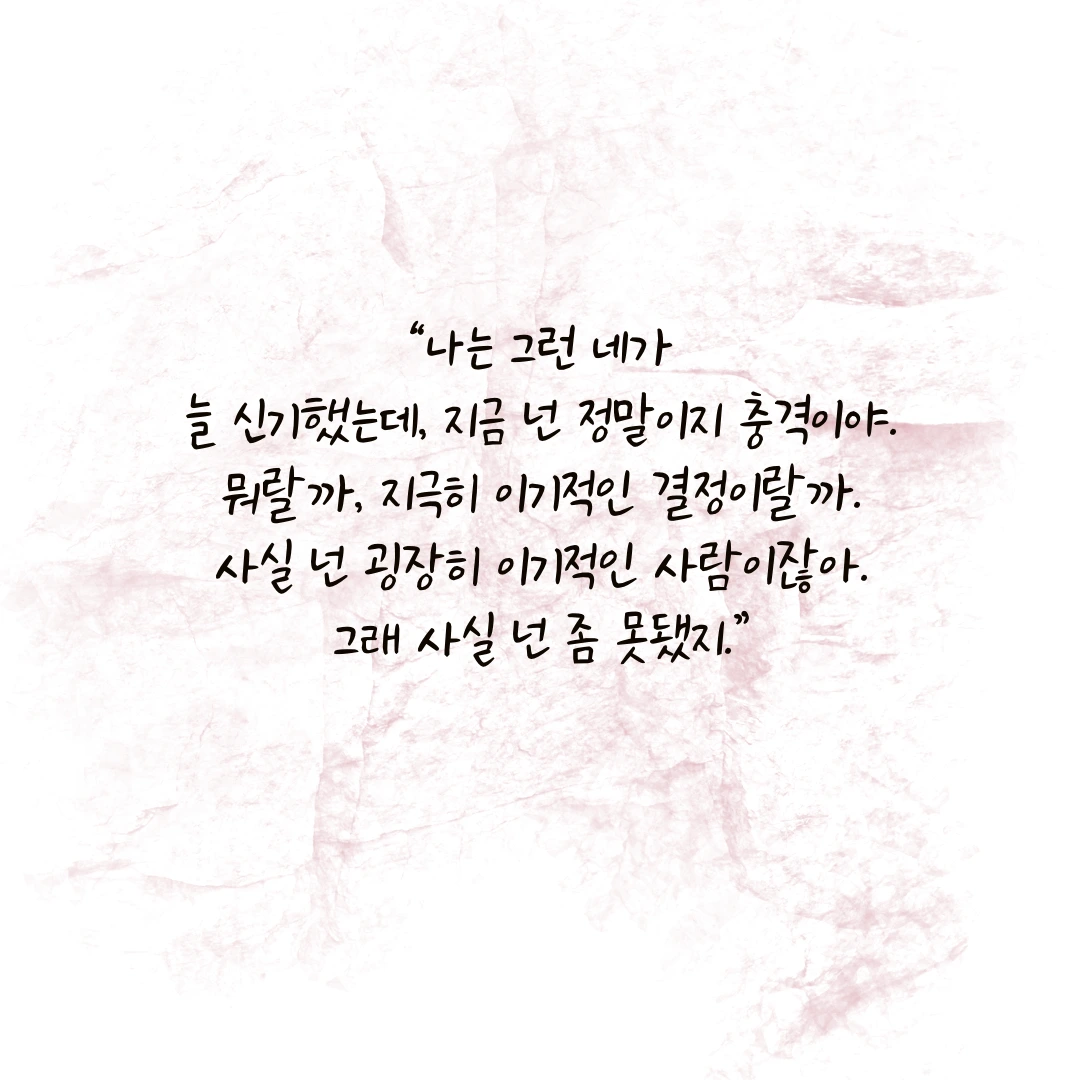 “나는 그런 네가
늘 신기했는데, 지금 넌 정말이지 충격이야.
뭐랄까, 지극히 이기적인 결정이랄까.
사실 넌 굉장히 이기적인 사람이잖아.
그래 사실 넌 좀 못됐지.”